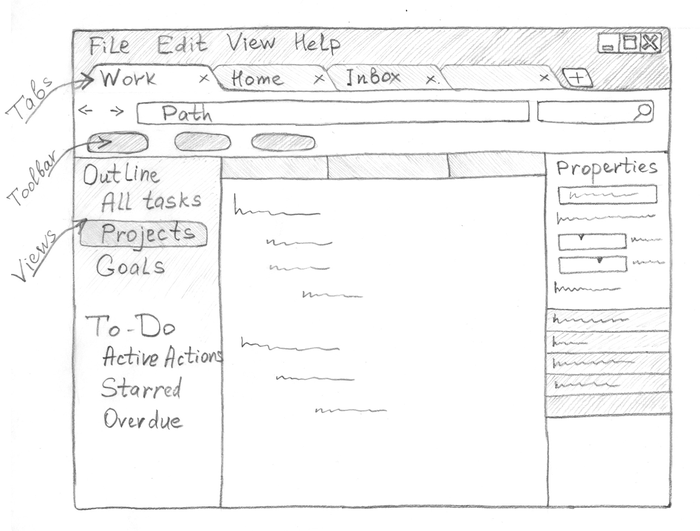 File Edit View Help
Work × Home × Inbox × ×
Tabs
Path
Toolbar
Outline
All tasks
Projects
Goals
Views
To-Do
Active Actions
Starred
Overdue
Properties